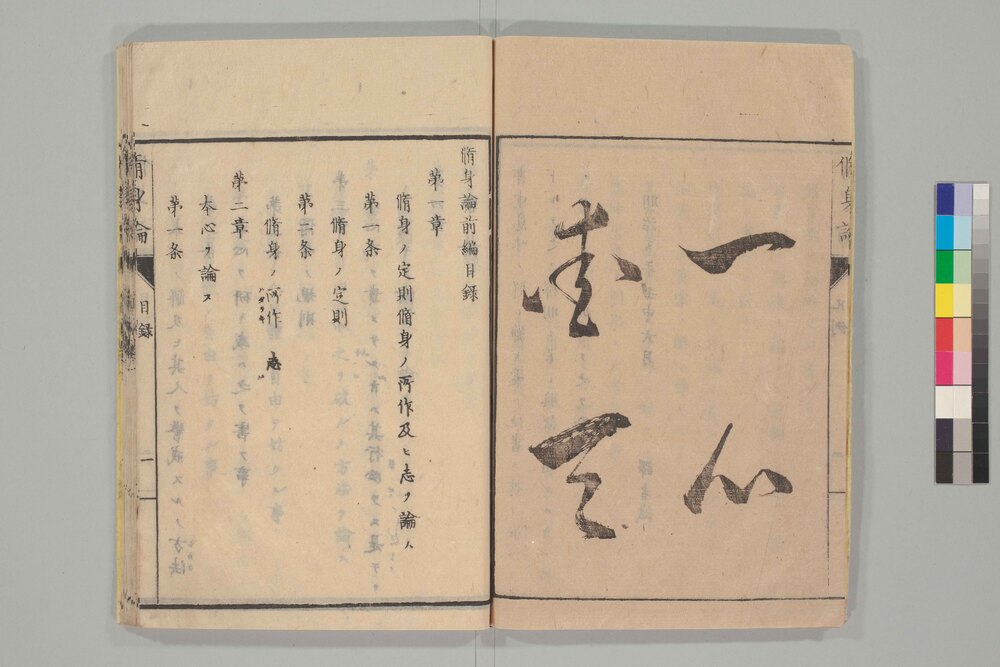 一心
脩身論前編目録
第一章
脩身ノ定則脩身ノ所作及ヒ志ヲ論ス
第一条
脩身ノ定則
第二条
脩身ノ所作 志
ハタラキ
第二章
本心ヲ論ス
第一条
脩身論
目録
一